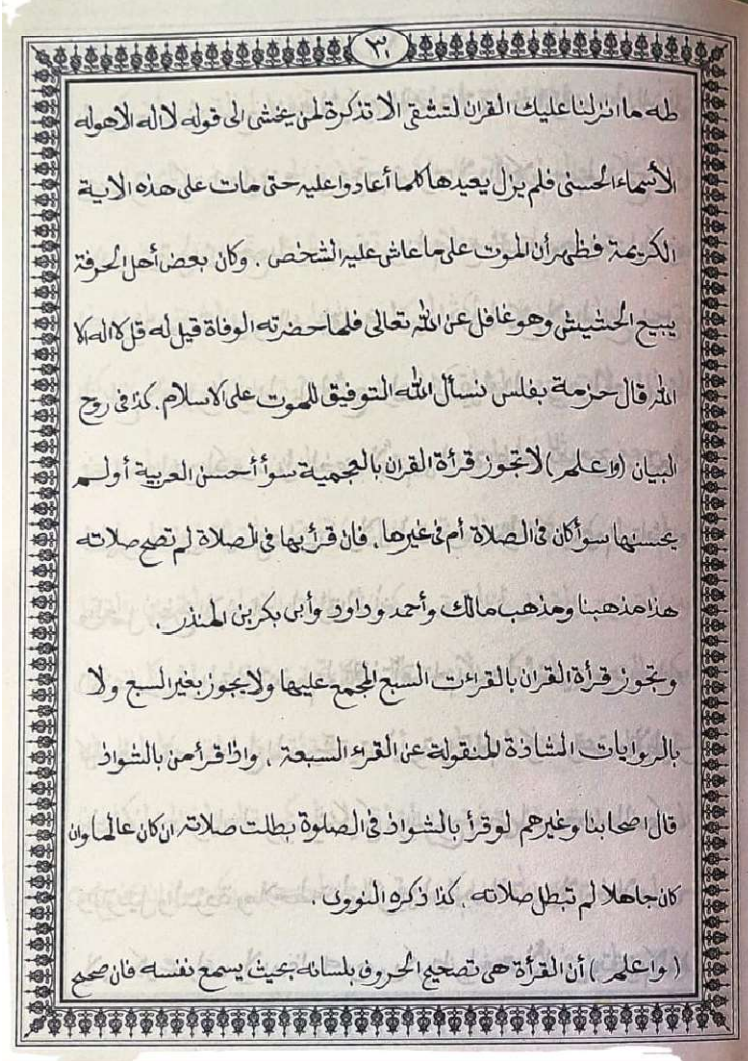 ٣٠
طه ما انزلنا عليك القران لتشقى الا تذكرة لمن يخشى الى قوله لا اله الا هو له
الأسماء الحسنى فلم يزل يعيدها كلما أعادوا عليه حتى مات على هذه الاية
الكريمة فظهر أن الموت على ما عاش عليه الشخص . وكان بعض أهل الحرفة
يبيع الحشيش وهو غافل عن الله تعالى فلما حضرته الوفاة قيل له قل لا اله الا
الله قال حزمة بفلس نسأل الله التوفيق للموت على الاسلام . كذا فى روح
البيان (واعلم) لا تجوز قرأة القران بالعجمية سوأ أحسن العربية أو لم
يحسنها سوأ كان فى الصلاة أم فى غيرها . فان قرأ بها فى الصلاة لم تصح صلاته
هذا مذهبنا ومذهب مالك وأحمد وداود وأبى بكر بن المنذر .
وتجوز قرأة القران بالقراءت السبع المجمع عليها ولا يجوز بغير السبع ولا
بالروايات الشاذة المنقولة عن القراء السبعة . واذا قرأ من بالشواذ
قال اصحابنا وغيرهم لو قرأ بالشواذ فى الصلوة بطلت صلاته ان كان عالما وان
كان جاهلا لم تبطل صلاته . كذا ذكره النووى .
(واعلم) أن القرأة هى تصحيح الحروف بلسانه بحيث يسمع نفسه فان صحيح